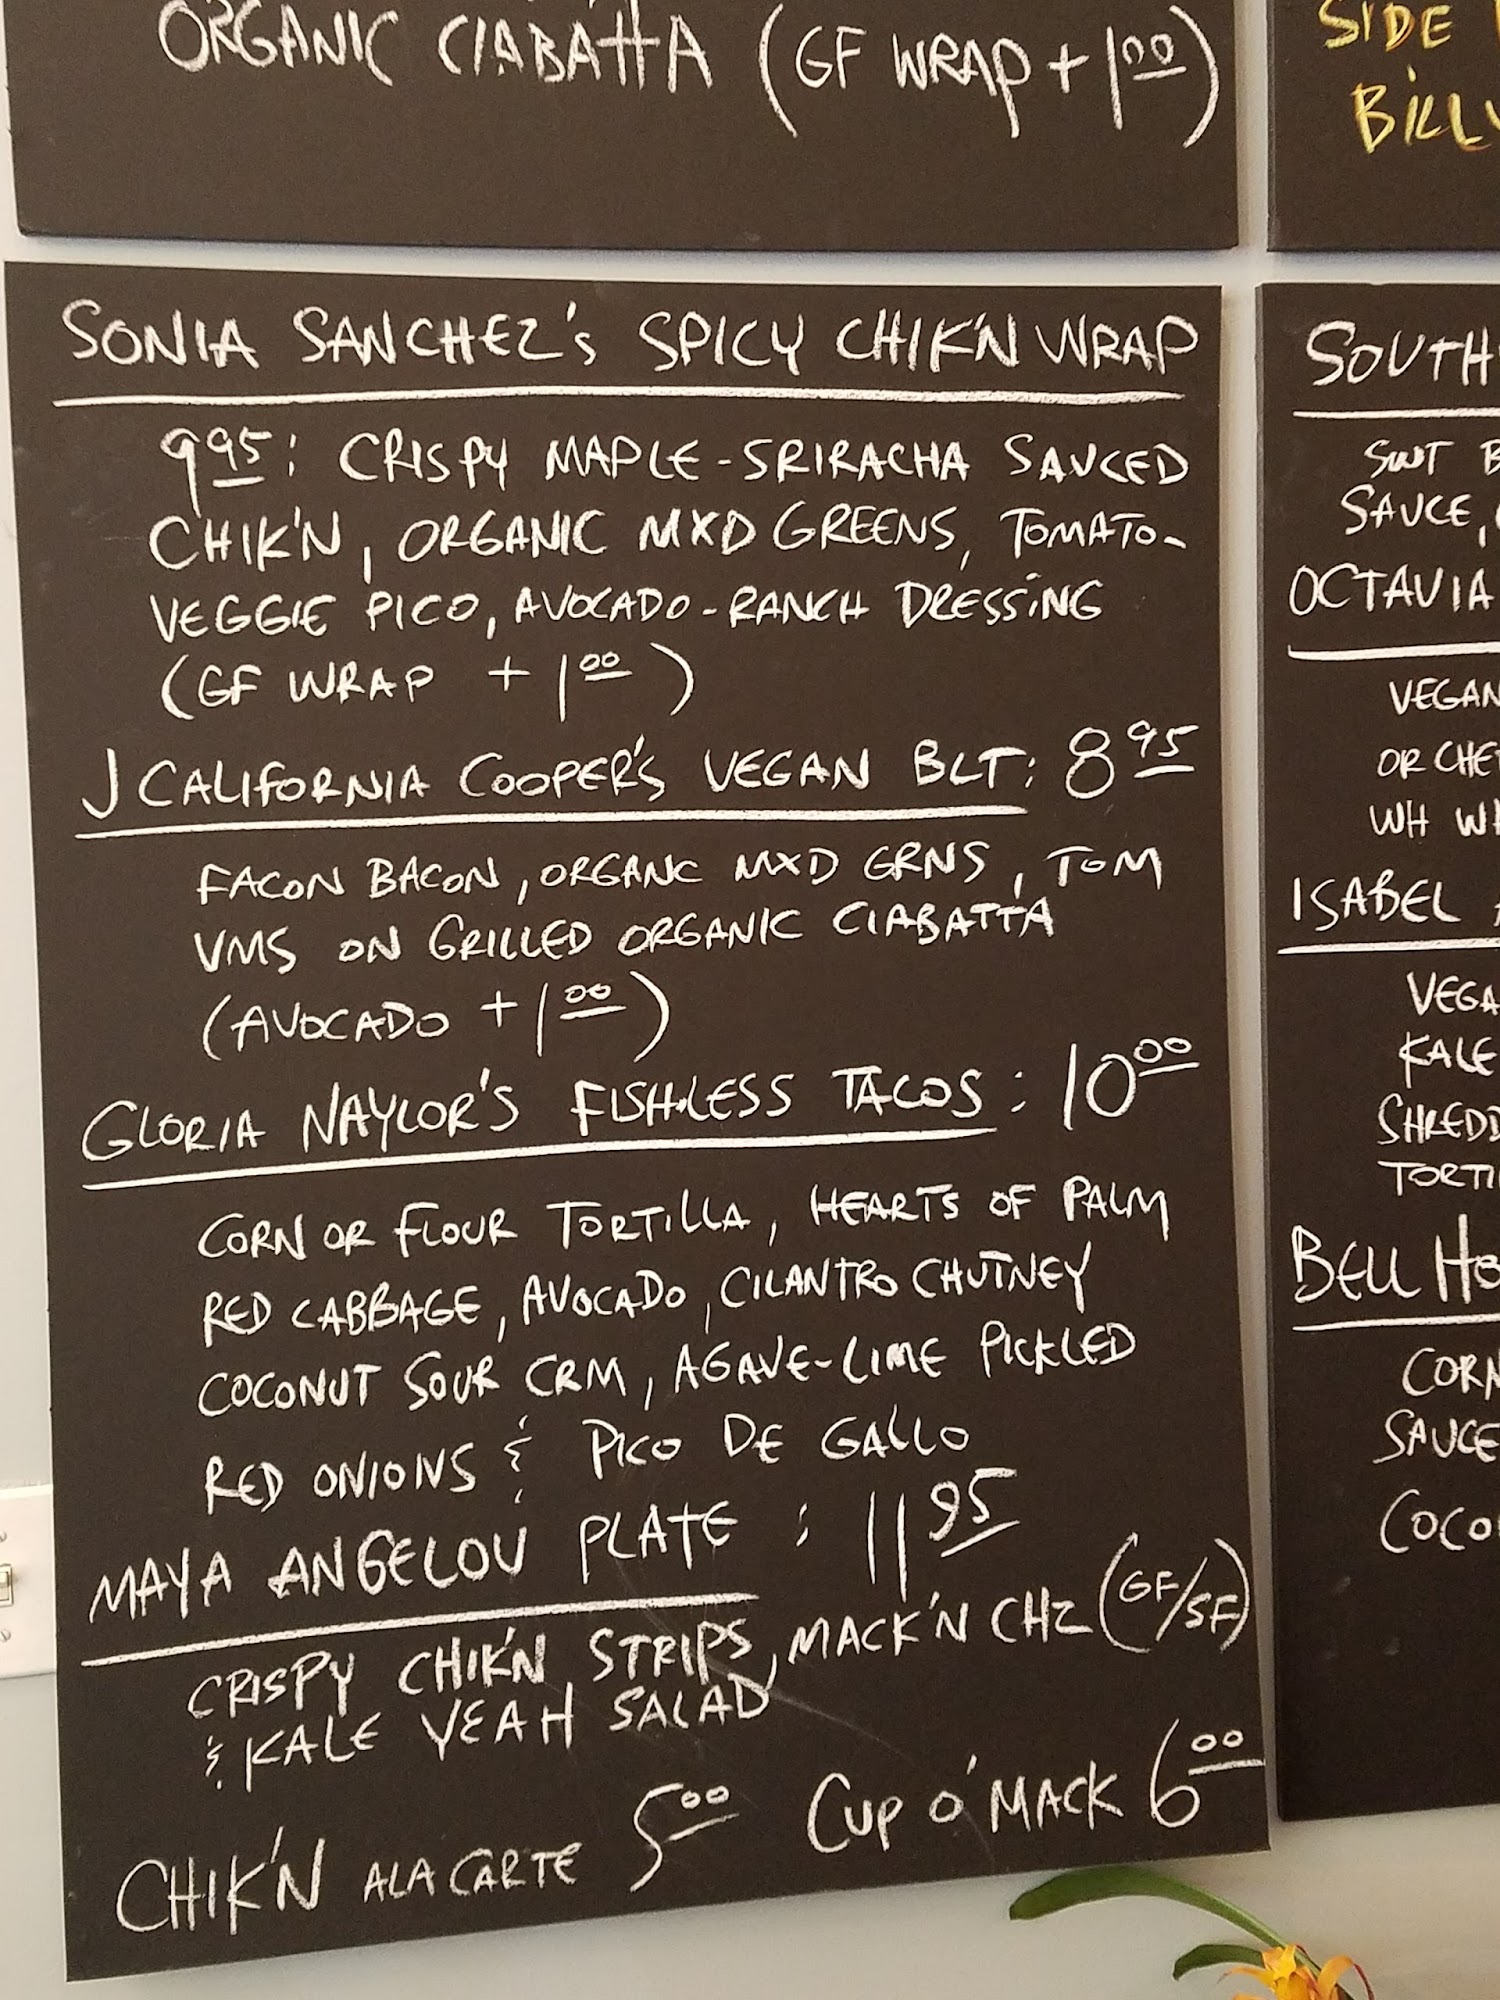 ORGANIC CIABATTA (GF WRAP + 1.00)
SIDE
SONIA SANCHEZ's SPICY CHIK'N WRAP
9.95: CRISPY MAPLE-SRIRACHA SAUCED
CHIK'N, ORGANIC MXD GREENS, TOMATO-
VEGGIE PICO, AVOCADO-RANCH DRESSING
(GF WRAP + 1.00)
J CALIFORNIA COOPER'S VEGAN BLT: 8.95
FACON BACON, ORGANC MXD GRNS, TOM
VMS ON GRILLED ORGANIC CIABATTA
(AVOCADO + 1.00)
GLORIA NAYLOR'S FISH-LESS TACOS: 10.00
CORN OR FLOUR TORTILLA, HEARTS OF PALM
RED CABBAGE, AVOCADO, CILANTRO CHUTNEY
COCONUT SOUR CRM, AGAVE-LIME PICKLED
RED ONIONS & PICO DE GALLO
MAYA ANGELOU PLATE: 11.95
CRISPY CHIK'N STRIPS, MACK'N CHZ (GF/SF)
& KALE YEAH SALAD
CHIK'N ALA CARTE 5.00 CUP O'MACK 6.00
SOUTH
SWT
SAUCE,
OCTAVIA
VEGAN
OR
WH
ISABEL
KALE
BELL
CORN
SAUCE